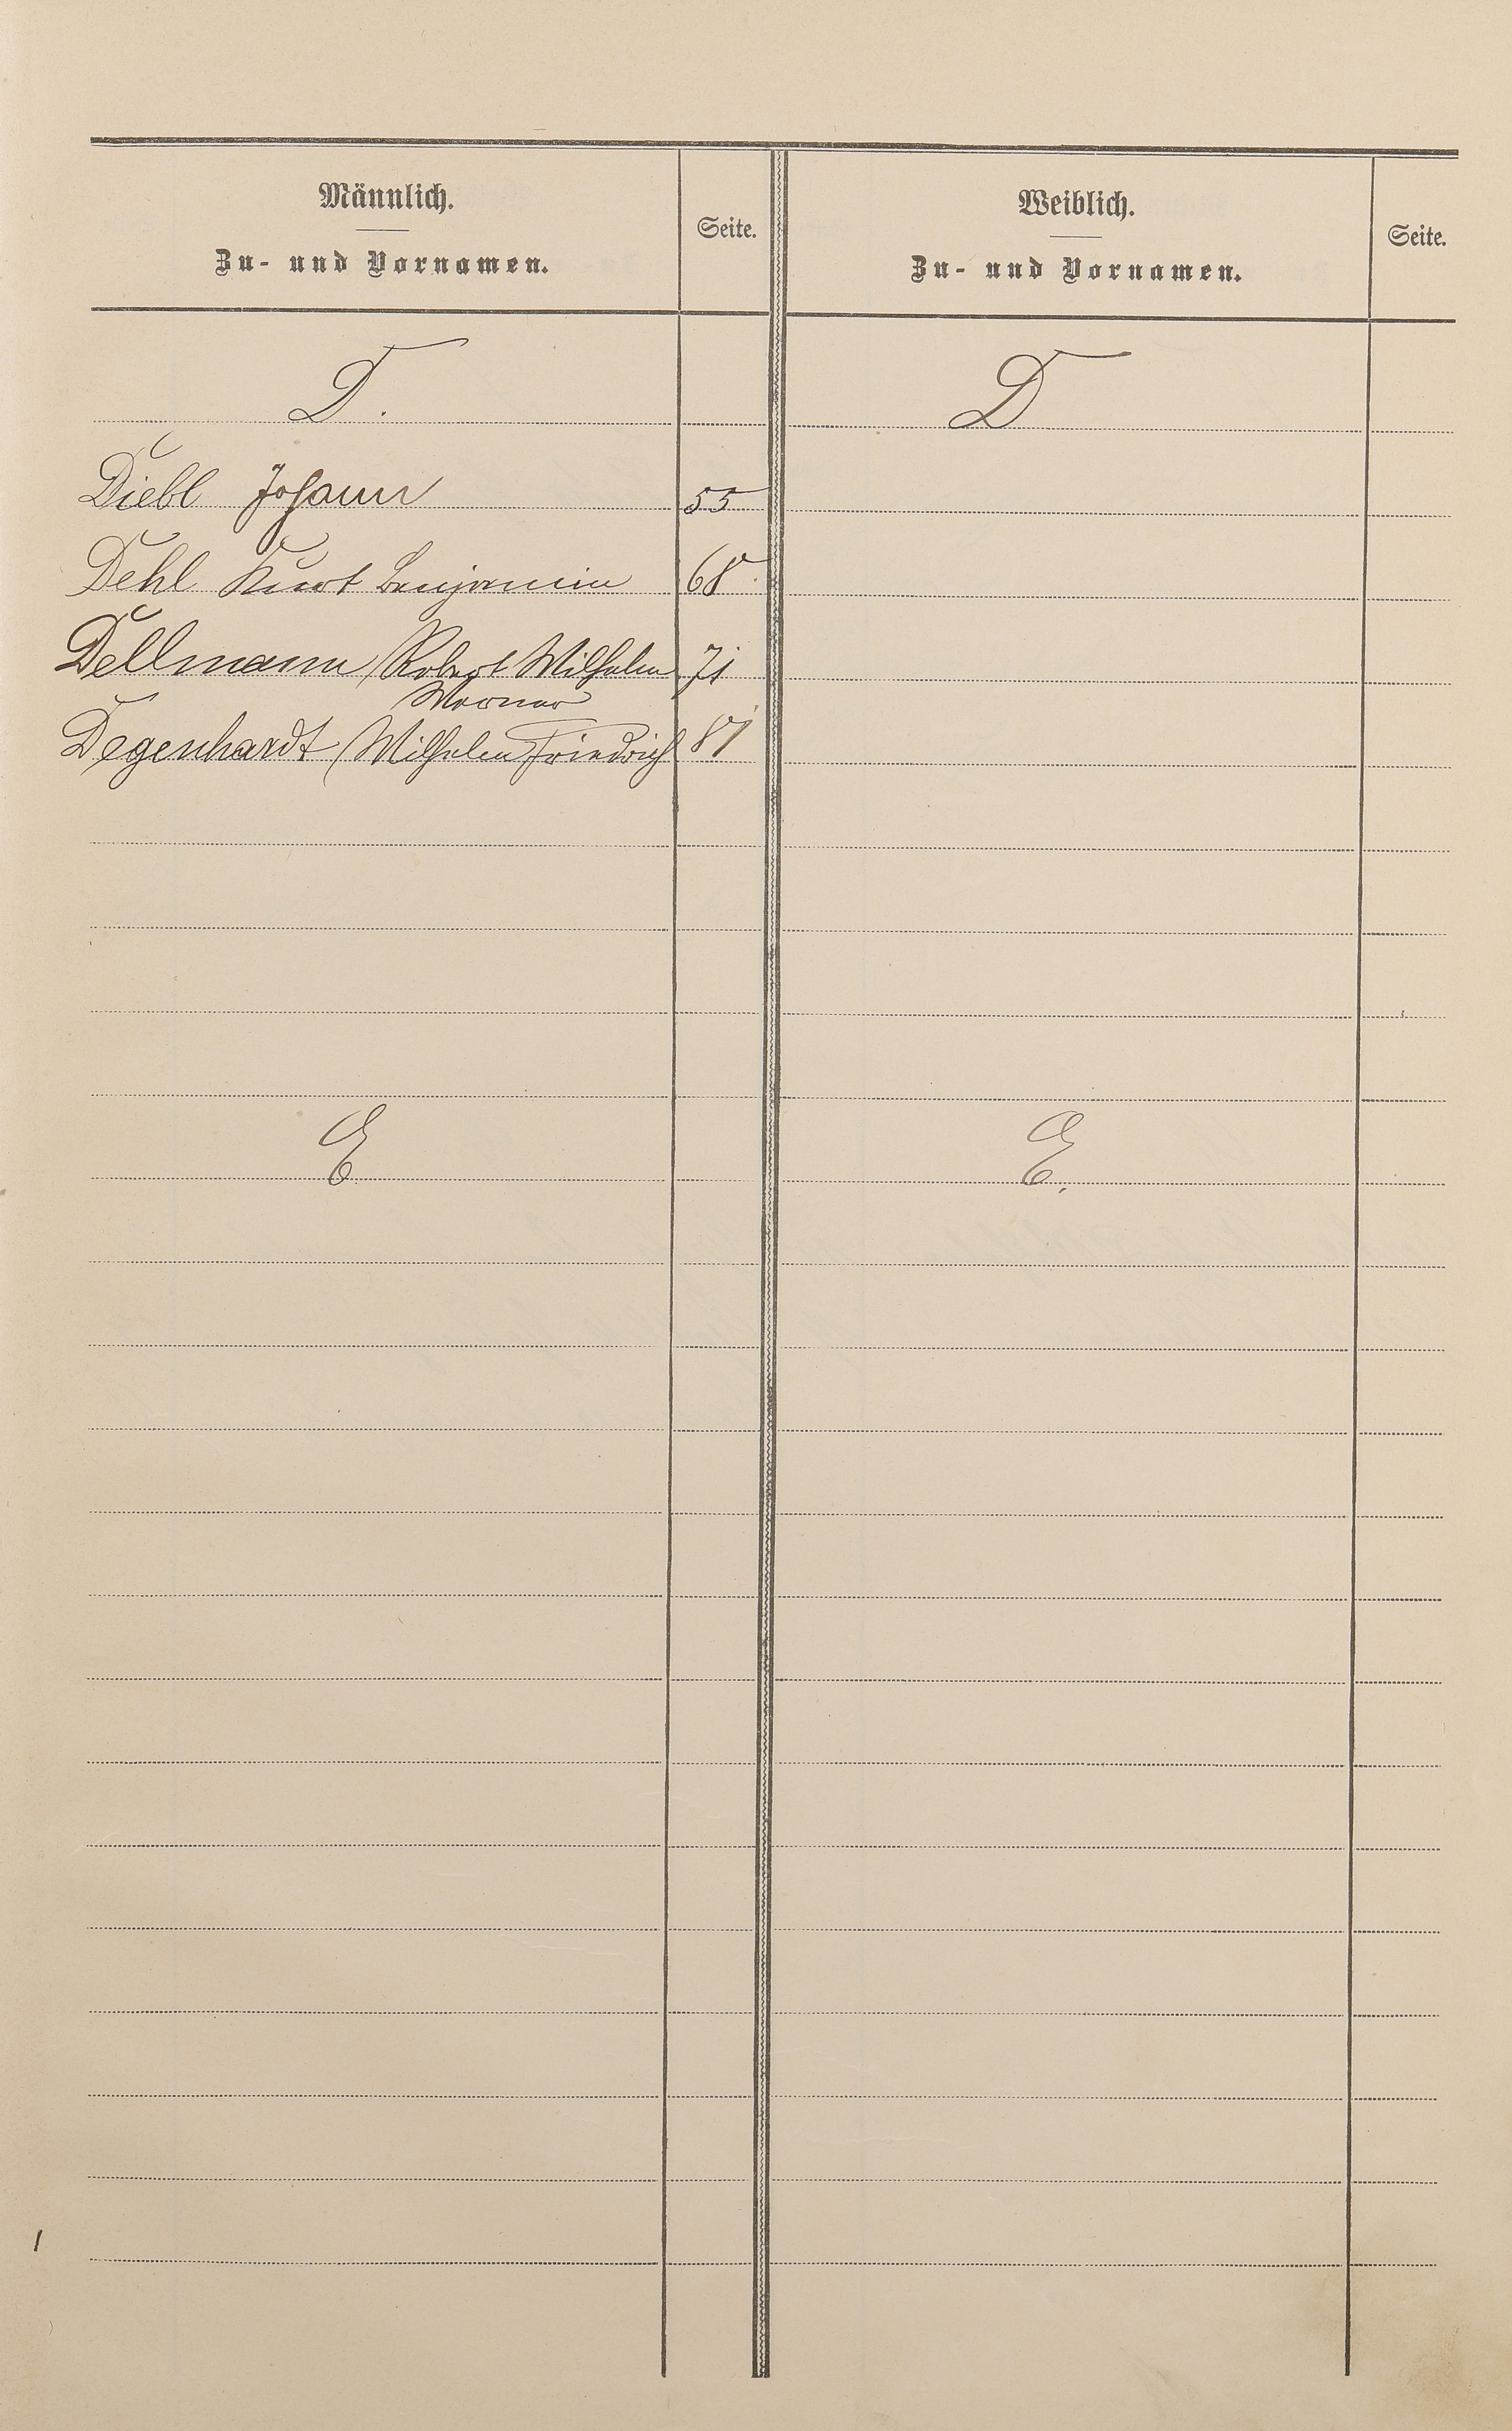 Männlich.
Zu- und Vornamen.
Seite.
Weiblich.
Zu- und Vornamen.
Seite.
D.
D
Diebl Johann 55
Dehl Kurt Benjamin 68
Dellmann, Robert Wilhelm 71
Werner
Degenhardt, Wilhelm Friedrich 81
E
E.